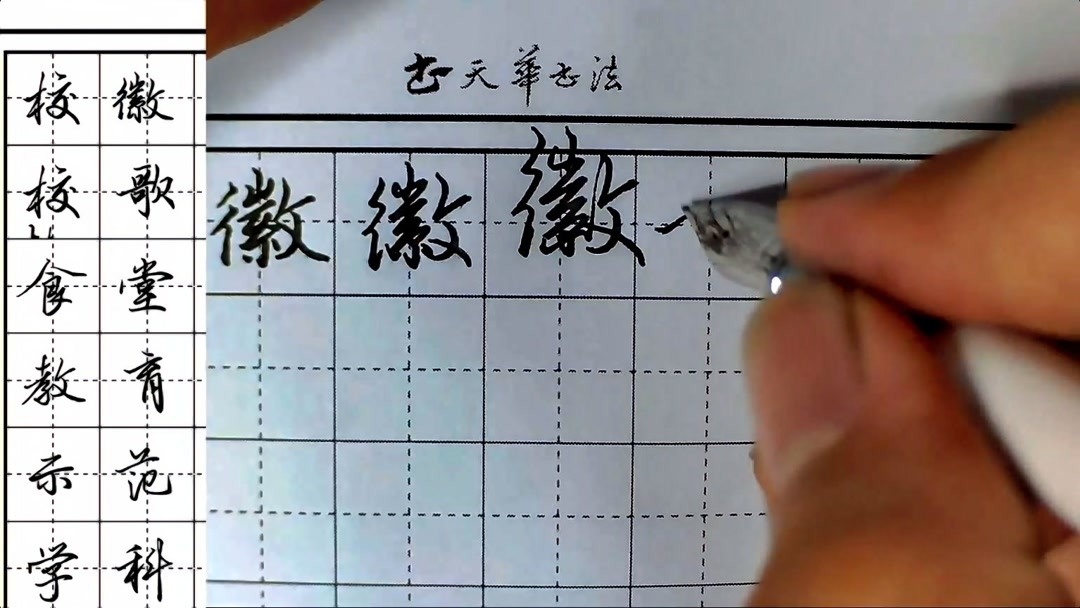 校徽
校歌
食堂
教育
示范
学科
天華书法
徽徽徽